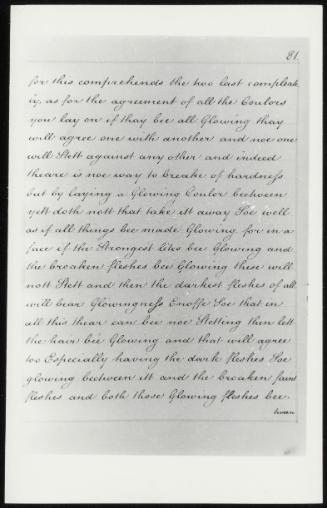 81.
for this comprehends the two last compleat
ly, as for the agreement of all the Coulors
you lay on if thay bee all Glowing thay
will agree one with another and noe one
will Sett against any other and indeed
theare is noe way to breake of hardness
but by laying a Glowing Coulor beetween
yett doth nott that take itt away Soe well
as if all things bee made Glowing for in a
face if the Strongest lites bee Glowing and
the broaken fleshes bee Glowing these will
nott Sett and then the darkest fleshes of all
will bear Glowingness Enoffe Soe that in
all this thear can bee noe Setting then lett
the hair bee Glowing and that will agree
too Especially having the dark fleshes Soe
glowing beetween itt and the broaken faint
fleshes and both those Glowing fleshes bee-
tween